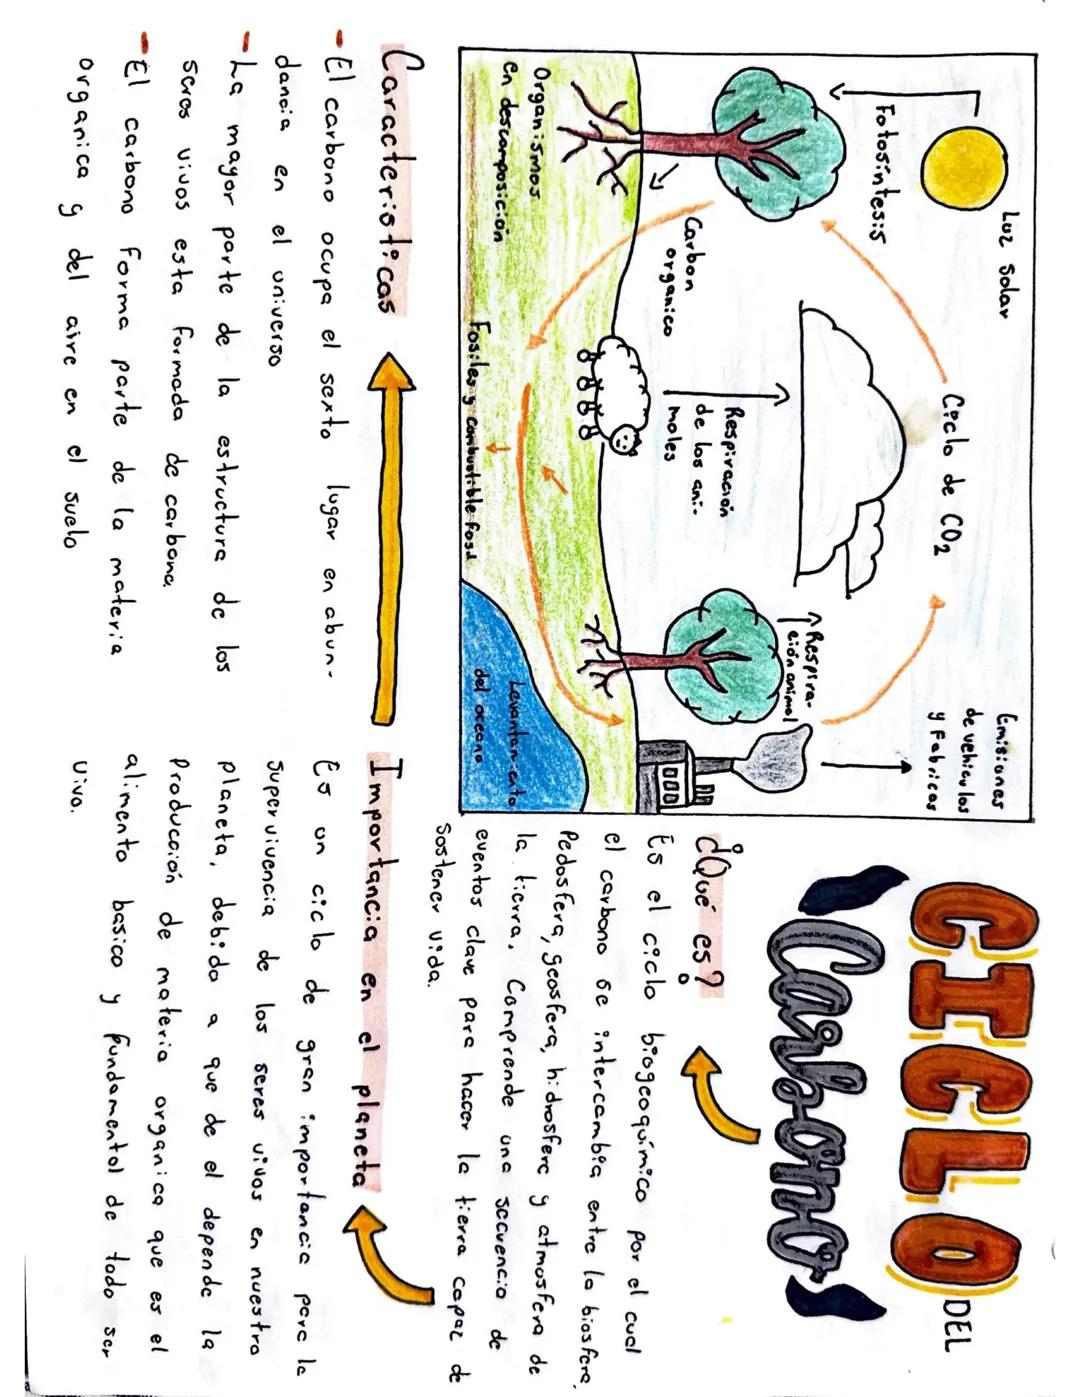 CICLO DEL
Carbono
Luz solar
Ciclo de CO2
Emisiones
de vehiculos
y Fabricas
Fotosintesis
Respira-
ción animal
Carbon
organico
Respiración
de los ani-
moles
Organismos
en descomposición
Fosiles y combustible fosil
Levantamiento
del oceano
¿Qué es?
Es el ciclo biogeoquímico por el cual
el carbono se intercambia entre la biosfera,
Pedosfera, geosfera, hidrosfera y atmosfera de
la tierra. Comprende una secuencia de
eventos clave para hacer la tierra capaz de
sostener vida.
Caracteristicas
- El carbono ocupa el sexto lugar en abun-
dancia en el universo
- La mayor parte de la estructura de los
seres vivos esta formada de carbono.
- El carbono forma parte de la materia
organica y del aire en el suelo
Importancia en el planeta
Es un ciclo de gran importancia para la
supervivencia de los seres vivos en nuestro
planeta, debido a que de el depende la
Producción de materia organica que es el
alimento basico y fundamental de todo ser
vivo.